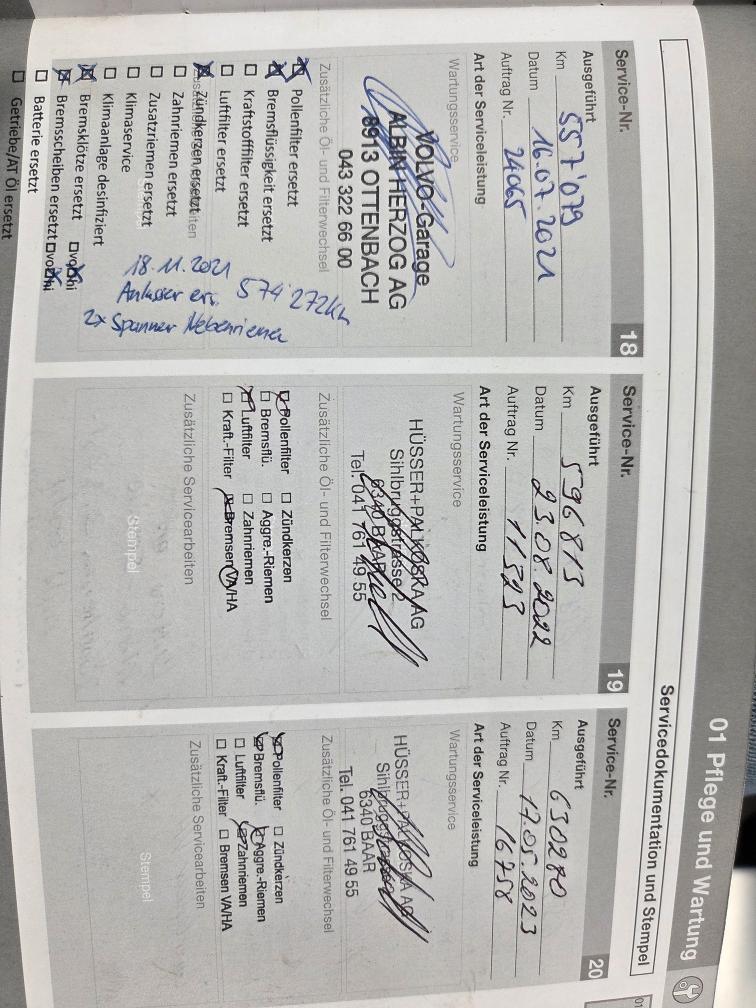 01 Pflege und Wartung
Servicedokumentation und Stempel
Service-Nr. 18
Ausgeführt
Km 557'079
Datum 16.07.2021
Auftrag Nr. 24065
Art der Serviceleistung
Wartungsservice
VOLVO-Garage
ALBIN HERZOG AG
8913 OTTENBACH
043 322 66 00
Zusätzliche Öl- und Filterwechsel
Pollenfilter ersetzt
Bremsflüssigkeit ersetzt
Kraftstofffilter ersetzt
Luftfilter ersetzt
Zündkerzen ersetzt
Zahnriemen ersetzt
Zusatzriemen ersetzt
Klimaservice
Klimaanlage desinfiziert
Bremsklötze ersetzt vo hi
Bremsscheiben ersetzt vo hi
Batterie ersetzt
Getriebe/AT Öl ersetzt
18.11.2021
Anlasser ers. 574'272km
2x Spanner Nebenriemen
Service-Nr. 19
Ausgeführt
Km 596813
Datum 23.08.2022
Auftrag Nr. 11523
Art der Serviceleistung
Wartungsservice
HÜSSER+PALKOSKA AG
Sihlbruggstrasse 2
6340 BAAR
Tel. 041 761 49 55
Zusätzliche Öl- und Filterwechsel
Pollenfilter Zündkerzen
Bremsflü. Aggre.-Riemen
Luftfilter Zahnriemen
Kraft.-Filter Bremsen VA/HA
Zusätzliche Servicearbeiten
Stempel
Service-Nr. 20
Ausgeführt
Km 630280
Datum 17.05.2023
Auftrag Nr. 16758
Art der Serviceleistung
Wartungsservice
HÜSSER+PALKOSKA AG
6340 BAAR
Tel. 041 761 49 55
Zusätzliche Öl- und Filterwechsel
Pollenfilter Zündkerzen
Bremsflü. Aggre.-Riemen
Luftfilter Zahnriemen
Kraft.-Filter Bremsen VA/HA
Zusätzliche Servicearbeiten
Stempel
01